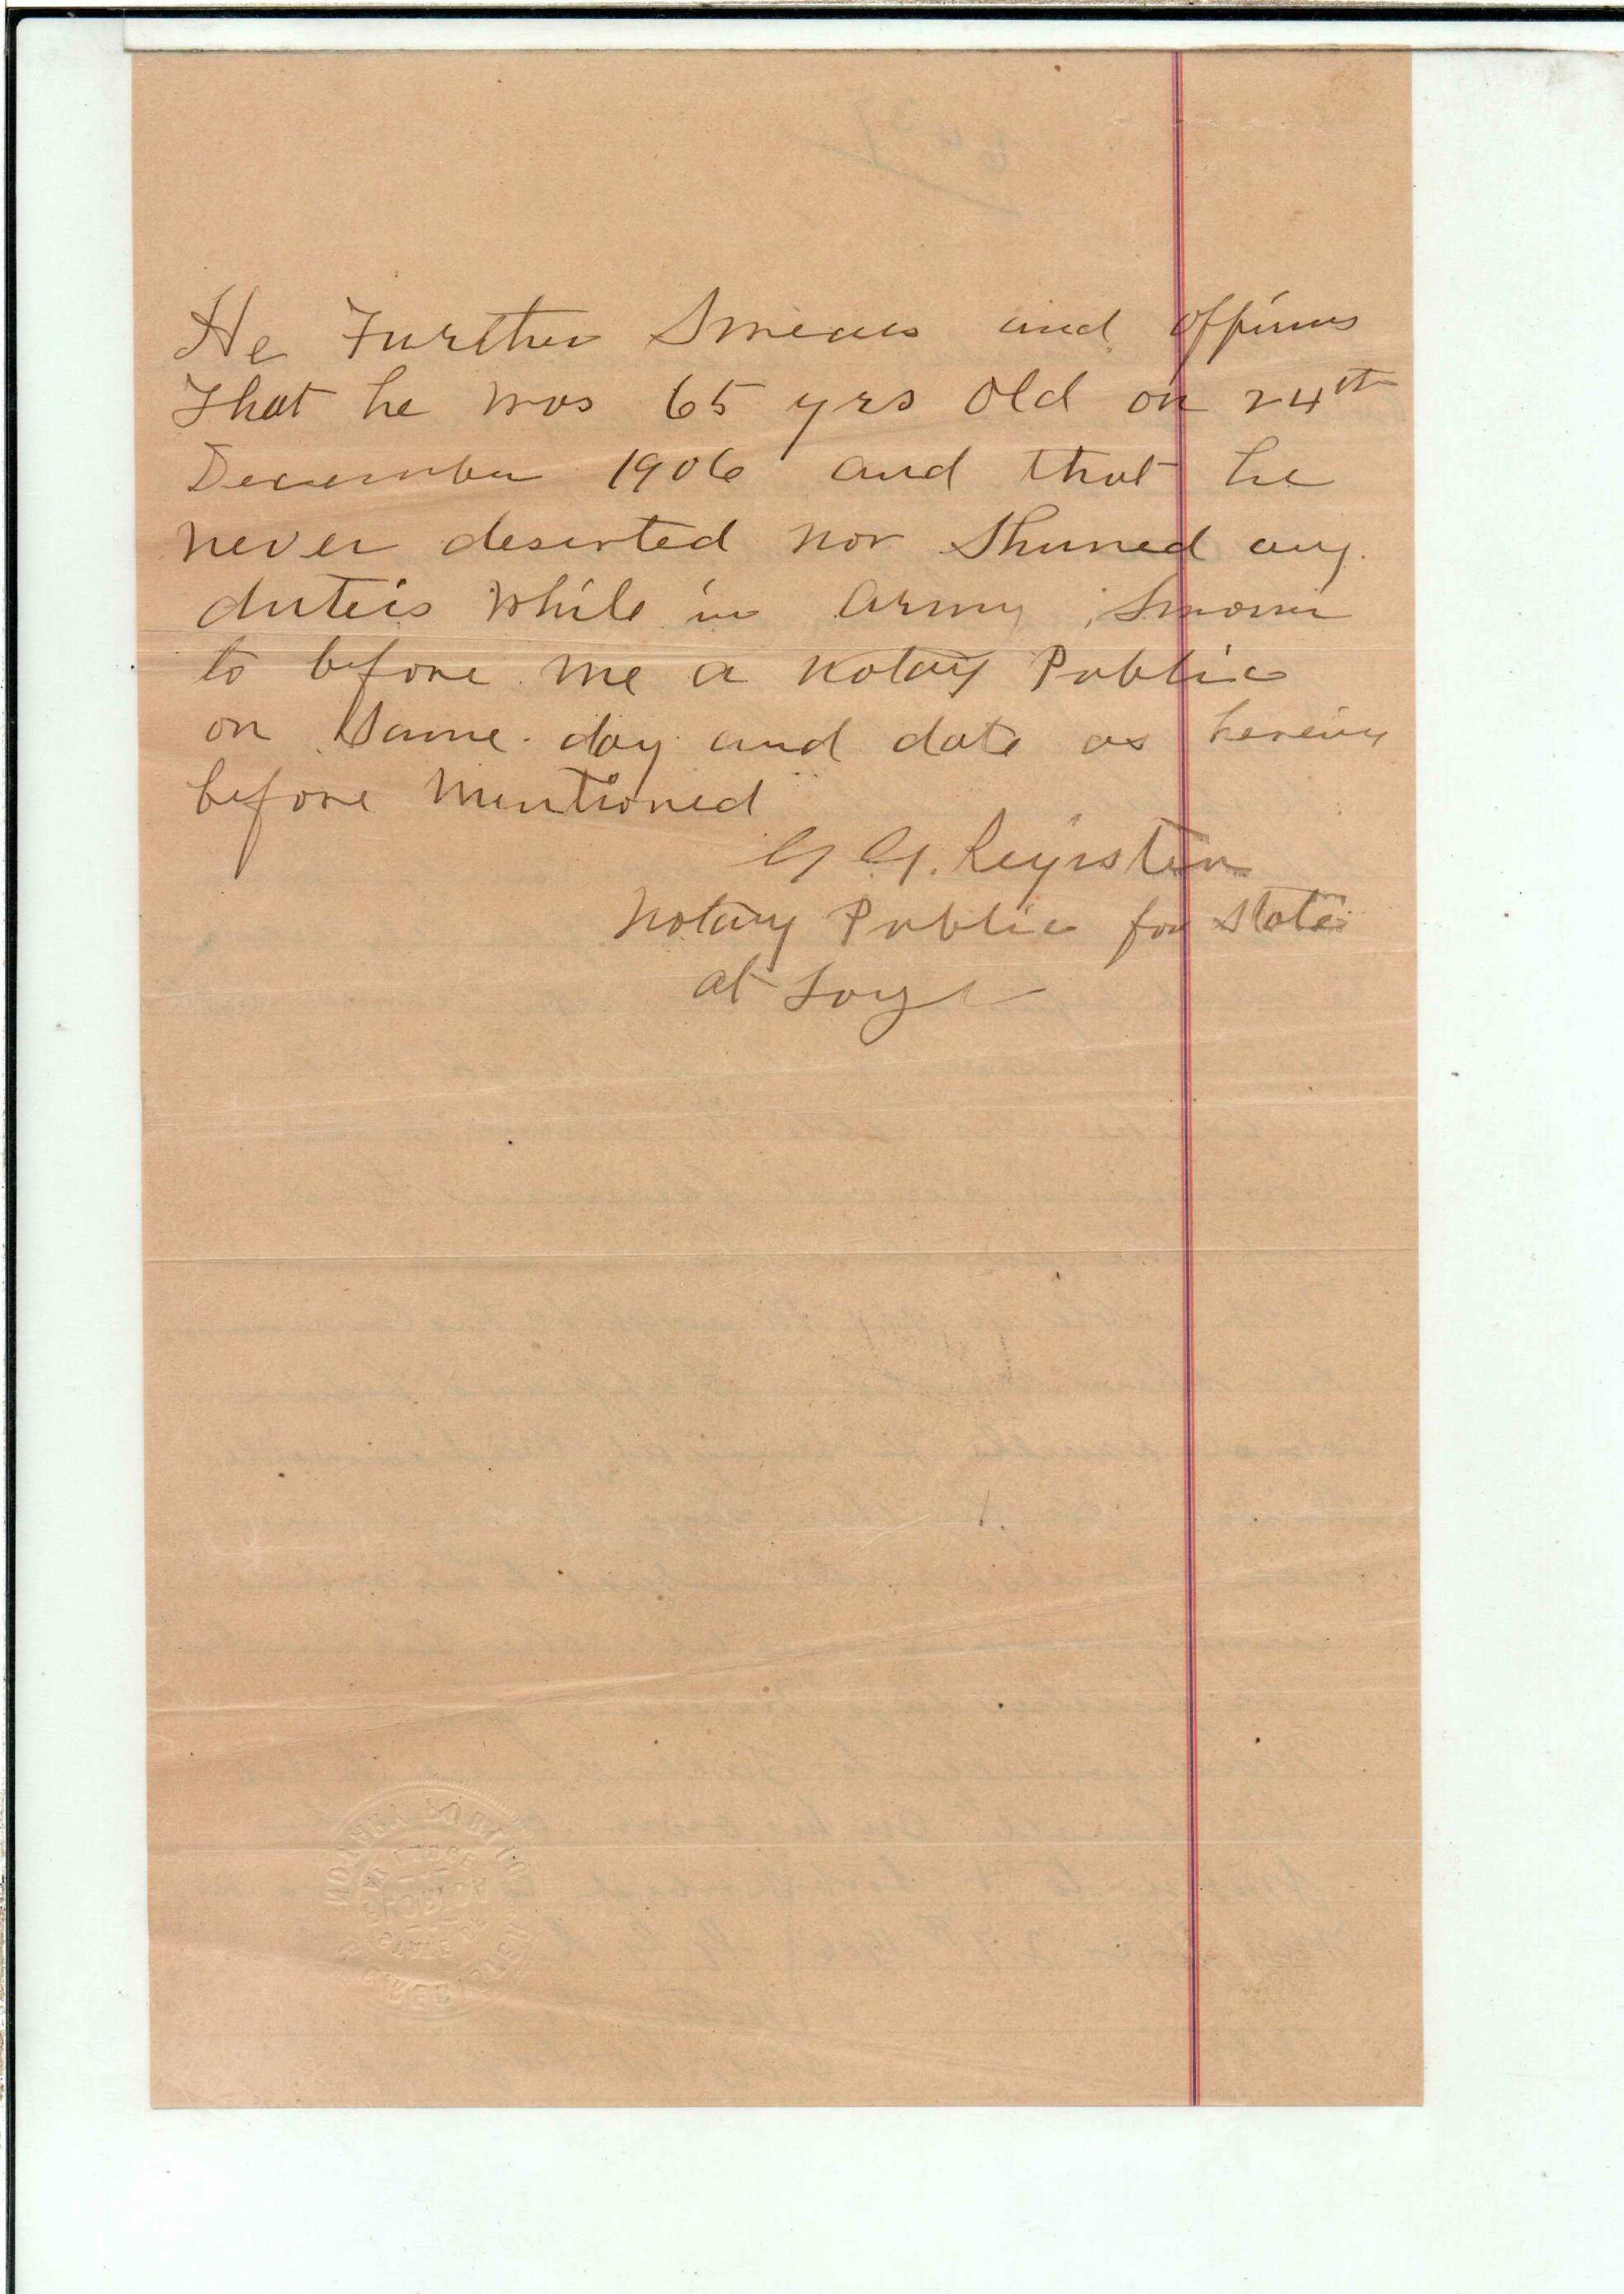 He Further Swears and affirms
That he was 65 yrs old on 24th
December 1906 and that he
never deserted nor Shuned any
duteis while in Army, Sworn
to before me a notary Public
on Same day and date as herein
before Mentioned
G G.
Notary Public for State
at Large